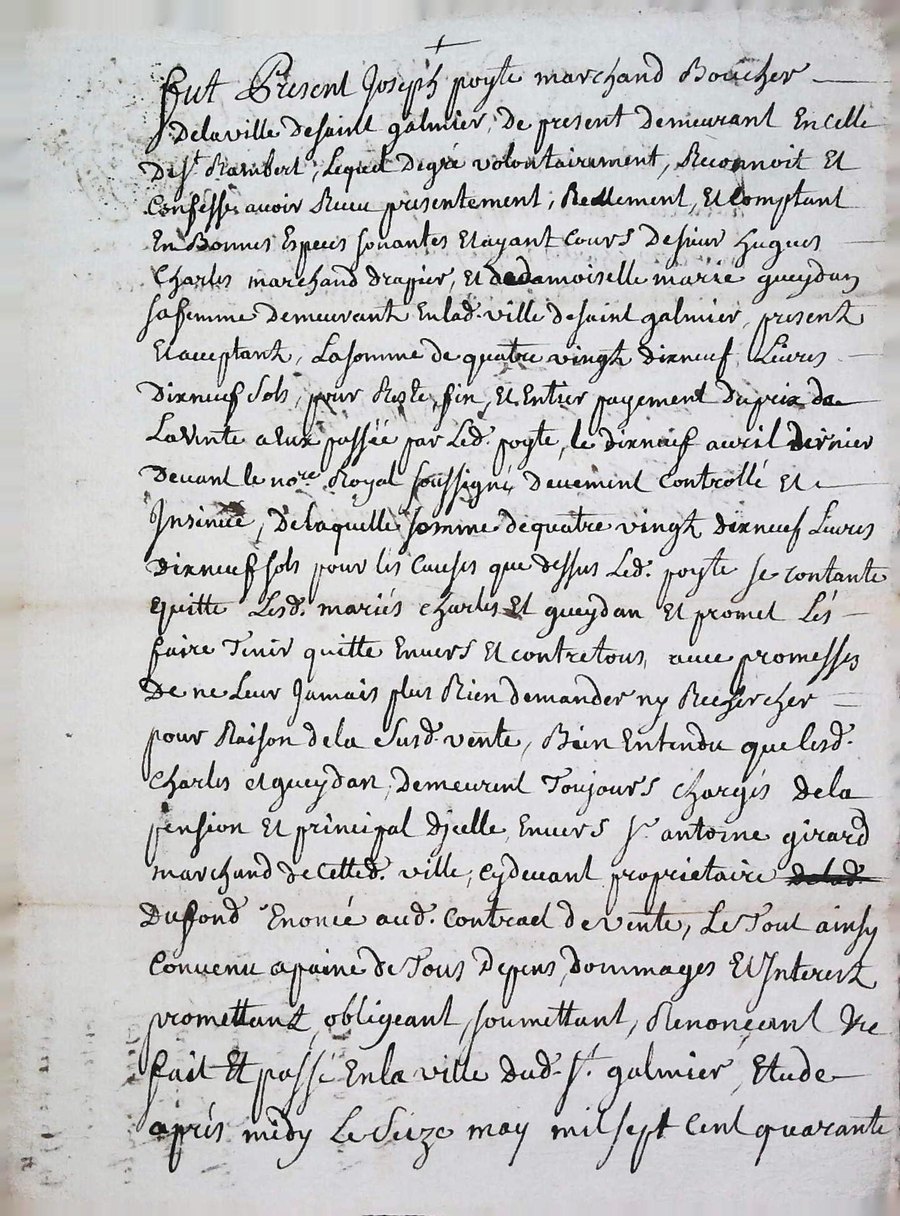 +
fut Present Joseph poyte marchand Boucher
Delaville desaint galmier, De present demeurant En celle
De st. Rambert, lequel Degré volontairement, Reconnoit Et
Confesse avoir Receu presentement, Reellement, Et Comptant
En Bonnes Especes sonantes Et ayant Cours De sieur hugues
Charles marchand drapier, Et de damoiselle marie gueydan
sa femme demeurant En lad. ville de saint galmier, present
Et acceptant, La somme de quatre vingt dixneuf Livres
Dixneuf sols, pour Reste, fin, Et Entier payement du prix de
La Vente a Eux passée par Led. poyte, le dixneuf avril dernier
Devant le nore. Royal soussigné deuement Controllé Et
Insinuée, De laquelle somme de quatre vingt dixneuf Livres
dixneuf sols pour les Causes que dessus Led. poyte se contante
Equitte Lesd. mariés charles Et gueydan Et promet Lés
faire Tenir quitte Envers Et contre tous, avec promesses
De ne Leur Jamais plus Rien demander ny Rechercher
pour Raison de la Susd. vente, Bien Entendu que lesd.
Charles et gueydan, Demeurent Toujours chargés dela
pension Et principal djcelle Envers sr. antoine girard
marchand de Cetted. ville, cydevant proprietaire delad.
Du fond Enoncé aud. Contract de vente, Le Tout ainsy
Convenu a paine de Tous Depens, dommages Et Interest
promettant, obligeant, soumettant, Renonçant &c
fait Et passé En la ville dud. st. galmier, Etude
aprés midy Le Seize may mil sept Cent quarante